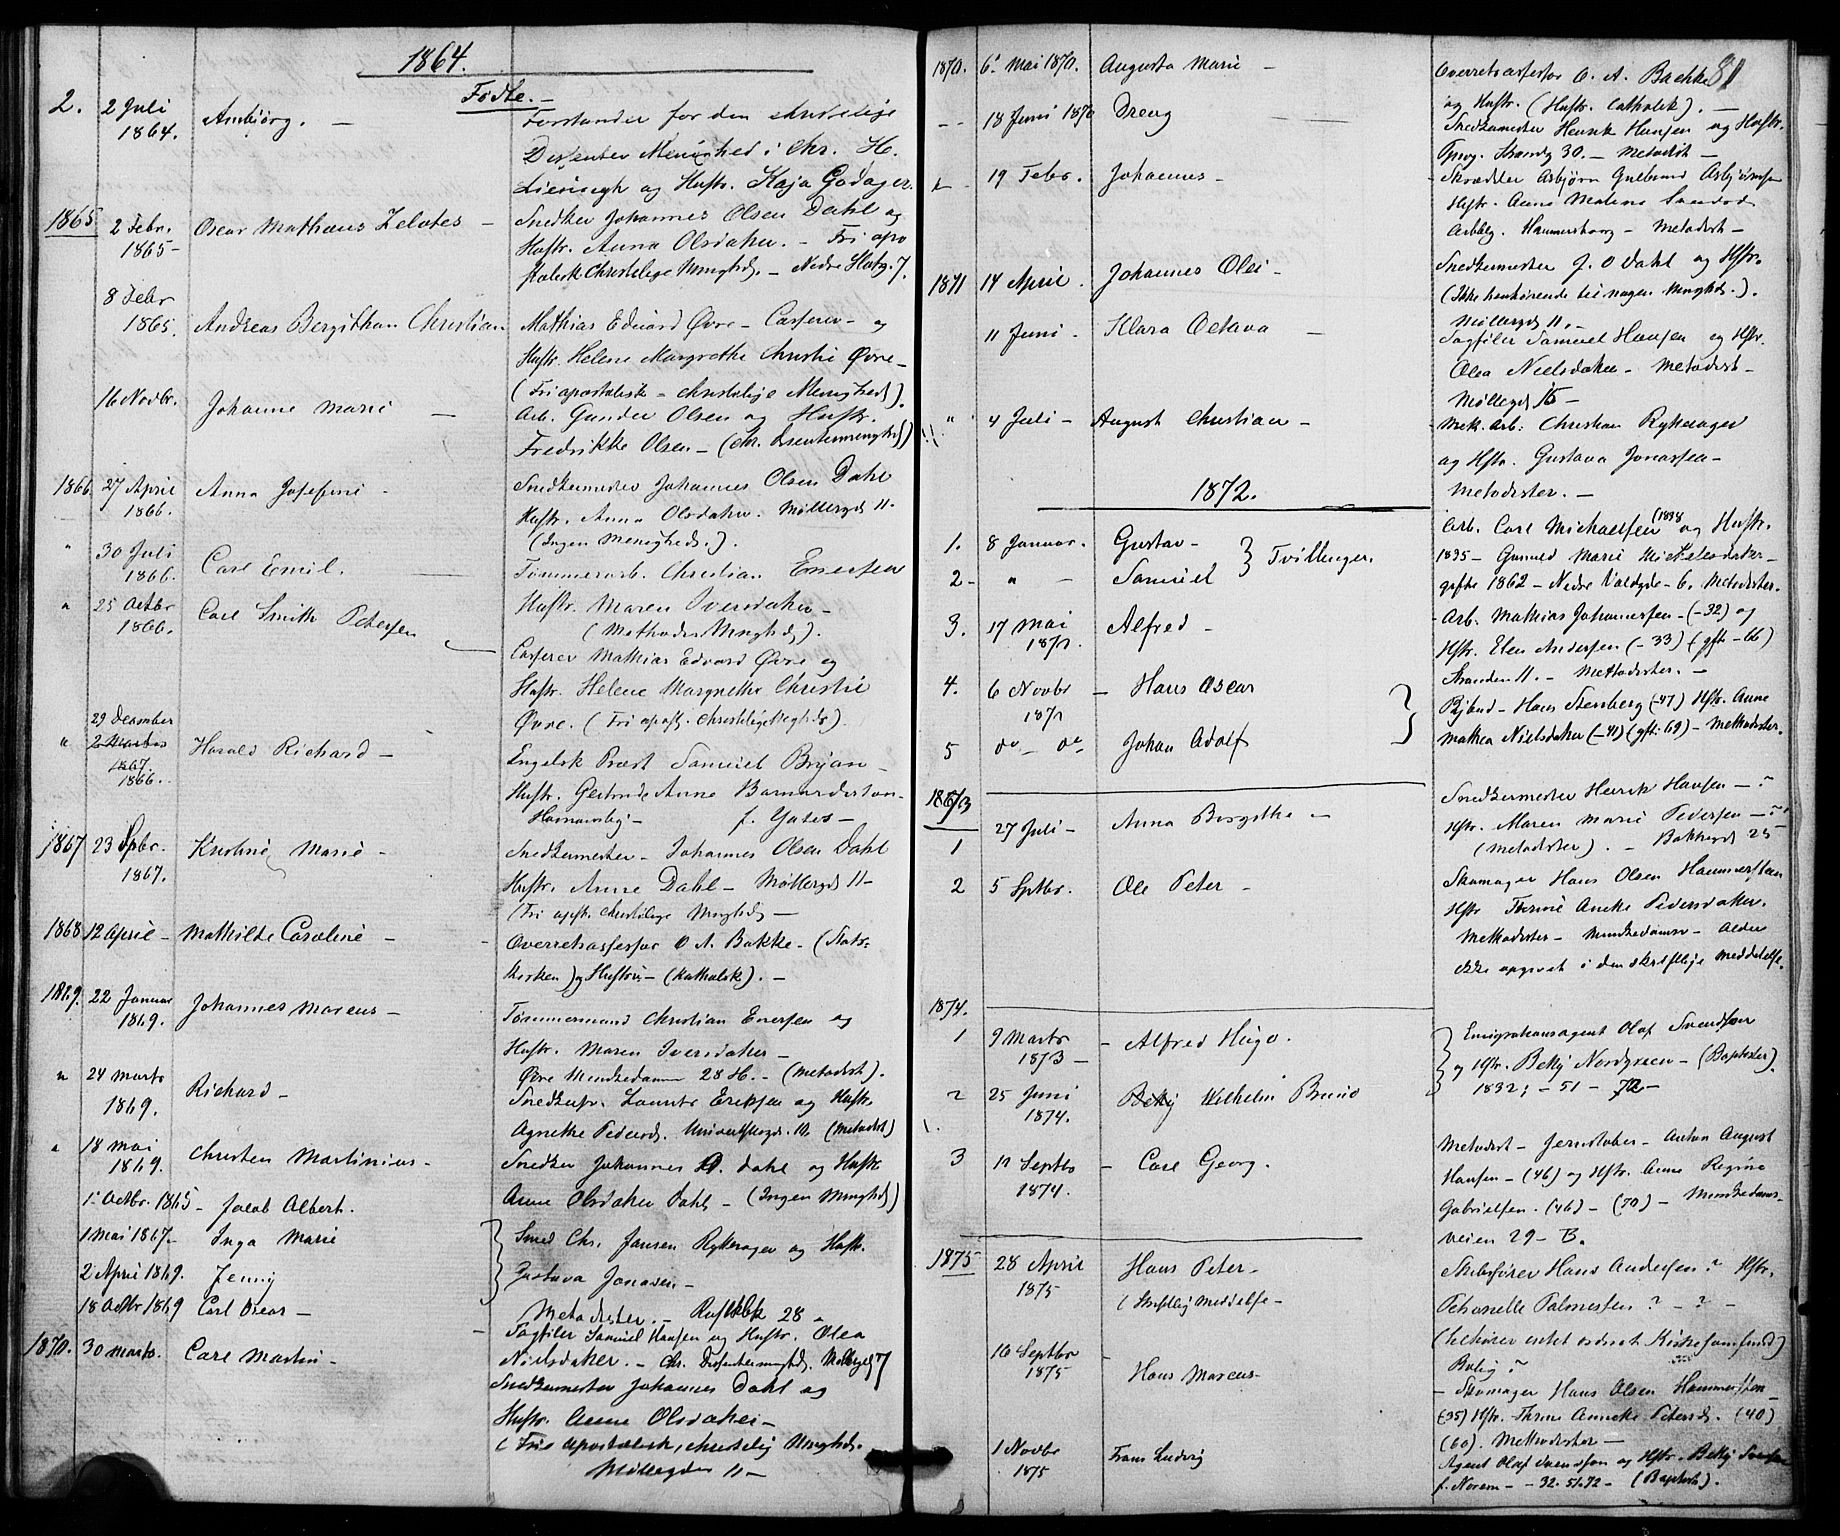 1864.
Fødte.-
2. 2 Juli 1864. Ambjørg. -
Forstander for den christelige
Dissenter Menighed i Chr. H.
og Hustr. Kaja Godager.
1865 2 Febr. 1865- Oscar Mathæus Zelotes -
Snedker Johannes Olsen Dahl og
Hustr. Anna Olsdatter. - Fri apo
stolisk Christelige Mnghd. - Nedre Slotsg. 7.
8 Febr 1865. Andreas Bergithan Christian
Mathias Edvard Øvre - Casserer - og
Hustr. Helene Margrethe Christie Øvre -
(Fri apostolisk - christelige Menighed).
16 Novbr. Johanne Marie -
Arb. Gunder Olsen og Hustr.
Fredrikke Olsen - (chr. Dissentermenighed)
1866 27 April 1866. Anna Josefine -
Snedkermester Johannes Olsen Dahl
Hustr. Anna Olsdatter. Møllergd 11.
(Ingen Menighed.).
" 30 Juli 1866. Carl Emil. -
Tømmerarb. Christian Enersen
Hustr. Maren Iversdatter -
(Methodist Mnghd).
" 25 Octbr 1866. Carl Smith Petersen
Casserer Mathias Edvard Øvre og
Hustr. Helene Margrethe Christie
Øvre. (Fri apost. Christelige Meghd).
" 29 December 1867. 1866. Harald Richard -
Engelsk Præst Samuel Brijan -
Hustr. Gertrude Anne Barnardiston -
Homansby - f. Yates -
1867 23 Spbr. 1867. Kristine Marie -
Snedkermester - Johannes Olsen Dahl
Hustr. Anne Dahl - Møllergd 11 -
(Fri apst. christelige Mnghd -
1868 12 April - Mathilde Caroline -
Overretsassessor O A. Bakke - (Stats-
kirken) og Hustru - (katholsk). -
1869. 22 Januar 1869. Johannes Marcus -
Tømmermand Christian Enersen og
Hustr. Maren Iversdatter -
Øvre Munkedamm 28 H. - (Metodist).
" 24 Marts 1869. Richard -
Snedkersv. Lauritz Eriksen og Hustr.
Agnethe Pedersd. Universitetsgd. 10. (Metodist)
" 18 Mai 1869. Christen Martinius -
Snedker Johannes O. Dahl og Hustr.
Anne Olsdatter Dahl - (Ingen Mnghd)
1. Octbr. 1865 - Jacob Albert.
1 Mai 1867 - Inga Marie
Smed Chr. Jansen Rykkesager og Hustr.
2 April 1869. Jenny
Gustava Jonasen -
18 Octbr 1869 Carl Oscar -
Metodister. - Rufsløkbk 28 -
1870. 30 Marts. Carl Martin -
Sagfiler Samuel Hansen og Hustr. Olea
Nielsdatter. - Chr. Dissentermnghd. Møllergd 7
Snedkermester Johannes Dahl og
Hustr. Anne Olsdatter -
(Frie Apostolisk, christelig Mnghd.
Møllergden 11 -
81
1870. 6. Mai 1870. Augusta Marie -
Overretsassessor O. A. Bachke
og Hustr. (Hustr. Catholsk). -
- - 18 Juni 1870 Dreng
Snedkermester Henrik Hansen og Hustr.
Strandg 30. - Metodist -
19 Febr. Johannes -
Skrædder Asbjørn Gulbrand Asbjørnsen
Hstr. Anne Malene
Hammersborg - Metodist -
1871 14 April. Johannes Olei -
Snedkermester J. O Dahl og Hstr.
(Ikke henhørende til nogen Mnghd.).
Møllergd 11. -
11 Juni - Klara Octava -
Sagfiler Samuel Hansen og Hstr.
Olea Nielsdatter - Metodist -
Møllegd 15 -
" 4 Juli - August Christian -
Mek. Arb: Christian Rykkesager
og Hstr. Gustava Jonassen -
Metodister. -
1872.
1. 8 Januar. Gustav -
2 - " - Samuel } Tvillinger.
Arb. Carl Michaelsen (1838 og Hustr.
1835 - Gunild Marie Mickelsdatter -
gifte 1862 - Nedre Voldgde - 6. Metodister.
3. 17 Mai 1871. Alfred -
Arb. Mathias Johannesen - (-32) og
Hstr. Elen Andersen (-33) (gft - 66)
Stranden 11. - Mettodister. -
4. 6 Novbr 1871 - Hans Oscar
5 do - do - Johan Adolf
Bybud - Hans Stenberg (-47) Hstr. Anne
Mathea Nielsdatter (-41) (gft: 69) - Methodister.
1873
1 27 Juli - Anna Birgitte -
Snedkermester Henrik Hansen - ?
Hstr. Maren Marie Pedersen - ?
(Metodister). - Bakkegd 25 -
2 5 Sptbr. Ole Peter -
Skomager Hans Olsen Hammersteen
Hstr Thrine Aneke Pedersdatter.
Methodister - Munkedamsv - Alder
ikke opgivet i den skriftlige Meddelelse.
1874.
1 9 Marts 1873 - Alfred Hugo.
Emigrationsagent Olaf Svendsen
og Hstr. Betty Nordgreen - (Baptister).
1832; - 51 - 72 -
2 25 Juni 1874. Betty Wilhelm Bruno
3 11 Septbr 1874. - Carl Georg.
Metodist - Jernstøber - Anton August
Hansen - (46) og Hstr. Anne Regine
Gabrielsen. (46) - (70) - Munkedams-
veien 29 - B.
1875 28 April 1875 Hans Peter -
(Skriftlig Meddelse -
Skibsfører Hans Andersen ? Hstr.
Petronelle Palmesten ? - ? -
(tilhører intet ordnet Kirkesamfund)
Bolig ?
10 Septbr 1875 - Hans Marcus -
- Skomager Hans Olsen Hammersten -
(35) Hstr. Thrine Anneke Petersd. (40)
(60). Methodister -
1 Novbr 1875 Frans Ludvig
Agent Olaf Svendsen og Hstr. Betty Svendsen
f. Norem - - 32. 51. 72 - (Baptist).